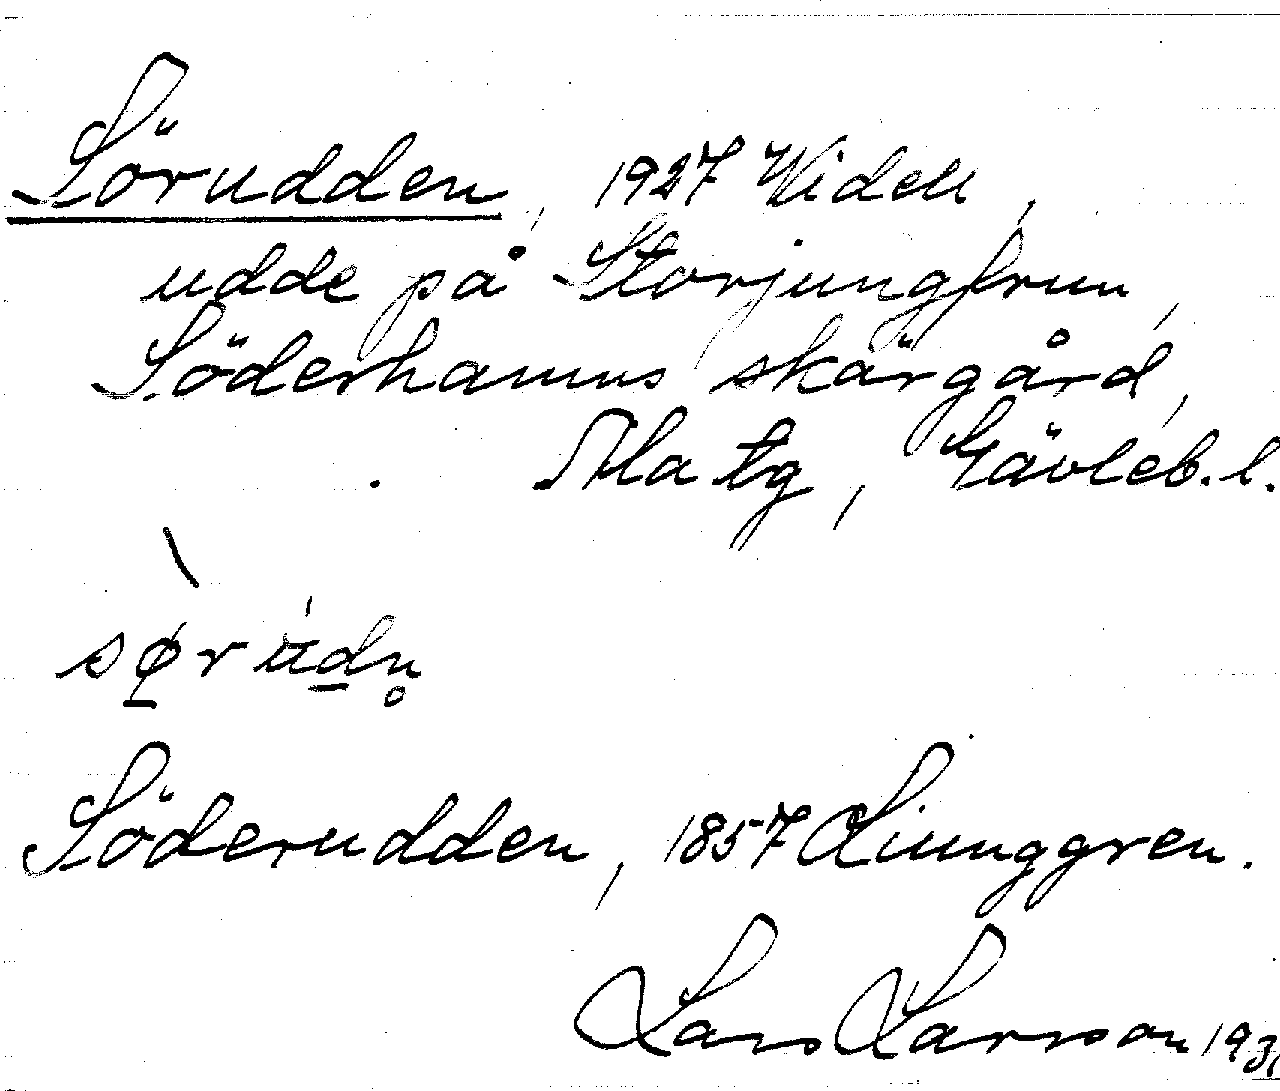 Sörudden, 1927 Widell,
udde på Storjungfrun,
Söderhamns skärgård,
Ala tg, Gävleb. l.
Söderudden, 1857 Liunggren.
Lars Larsson